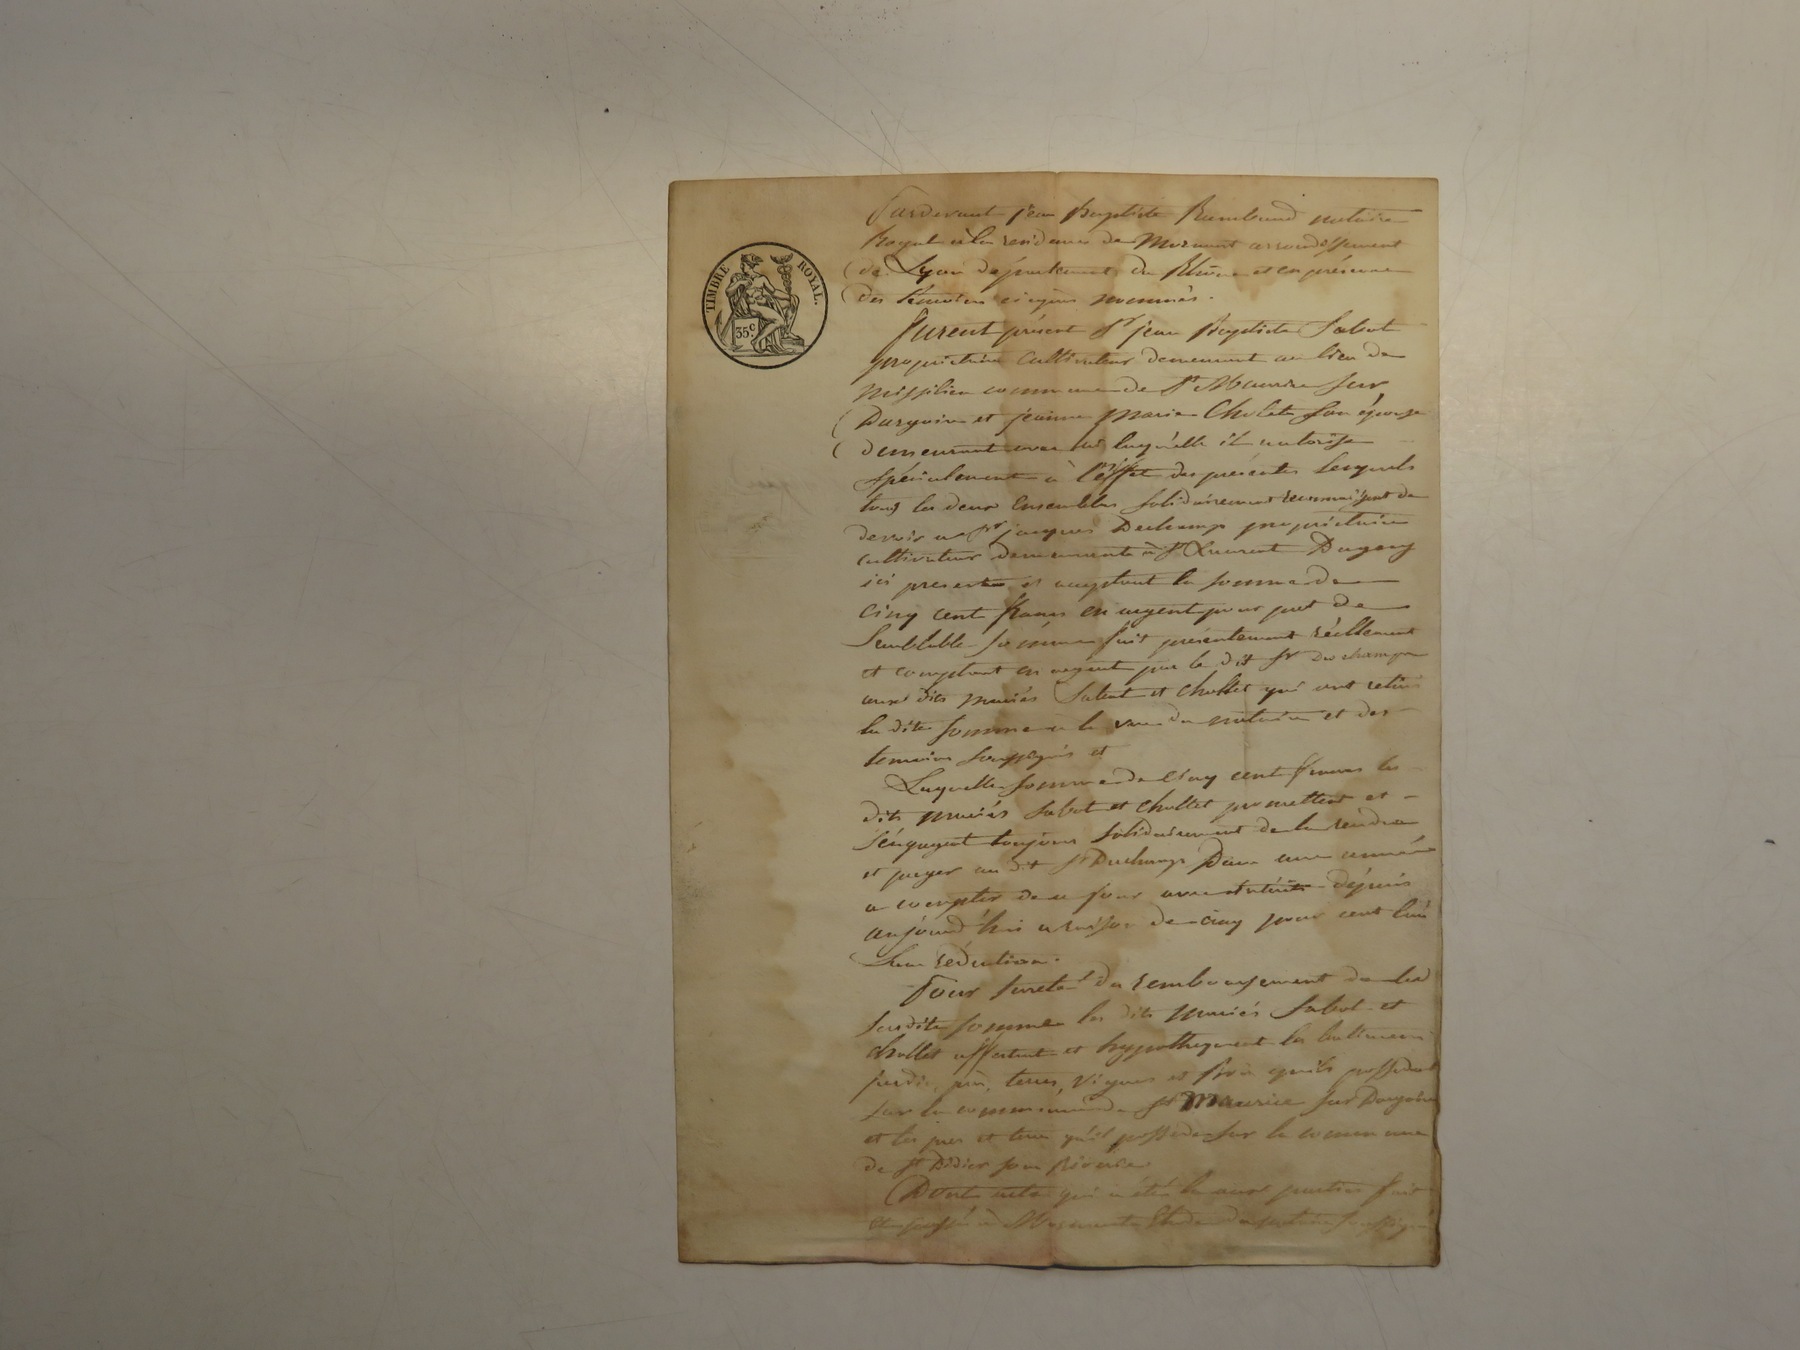 TIMBRE ROYAL.
35.c
Pardevant jean Baptiste Rambaud notaire
Royal à la residence de Mornant arrondissement
de Lyon département du Rhône et en présence
des témoins ci après nommés.
Furent présent Sr jean Baptiste Sabot
propriétaire Cultivateur demeurant au lieu de
Missilieu commune de St Maurice sur
Dargoire et jeanne Marie Cholet son épouse
demeurant avec lui laquelle il autorise
spécialement à l'effet des présentes Lesquels
tous les deux Ensembles solidairement reconnaissent
devoir a Sr jacques Duchamp propriétaire
cultivateur demeurant à St Laurent Dagny
ici present et acceptant la somme de
cinq cent francs en argent pour pret de
Semblable somme fait présentement réellement
et comptant en argent par le dit Sr Duchamp
aux dits mariés Sabot et Chollet qui ont retiré
la dite somme a la vue du notaire et des
temoins soussignés et
Laquelle somme de cinq cent francs les
dits mariés Sabot et Chollet promettent et
s'engagent toujours solidairement de la rendre
et payer au dit Sr Duchamp Dans une année
a compter de ce jour avec intérêts dépuis
aujourd'hui a raison de cinq pour cent l'an
Sans rédution.
Pour sureté du remboursement de la
susdite somme les dits mariés Sabot et
Chollet affectent et hypothequent les batiments
jardin, prés, terres, vignes et bois qu'ils possedent
sur la commune de St Maurice sur Dargoire
et les pres et terre qu'il possede sur la commune
de St Didier sous Riverie.
Dont acte qui a été lu aux parties fait
et passé à Mornant Etude du notaire soussigné